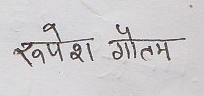 रूपेश गौतम